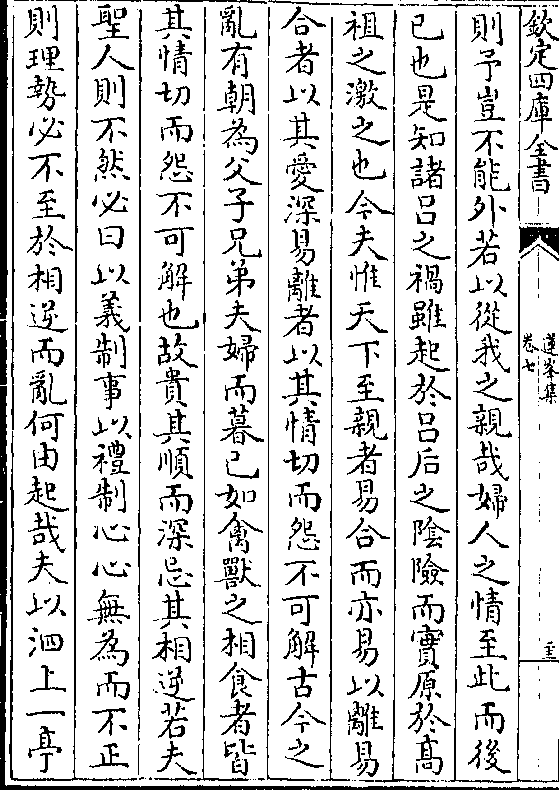 欽定四庫全書
蓮峯集
卷七
則予豈不能外若以從我之親哉婦人之情至此而後
已也是知諸呂之禍雖起於呂后之陰險而實原於髙
祖之激之也今夫惟天下至親者易合而亦易以離易
合者以其愛深易離者以其情切而怨不可解古今之
亂有朝為父子兄弟夫婦而暮已如禽獸之相食者皆
其情切而怨不可解也故貴其順而深忌其相逆若夫
聖人則不然必曰以義制事以禮制心心無為而不正
則理勢必不至於相逆而亂何由起哉夫以泗上一亭